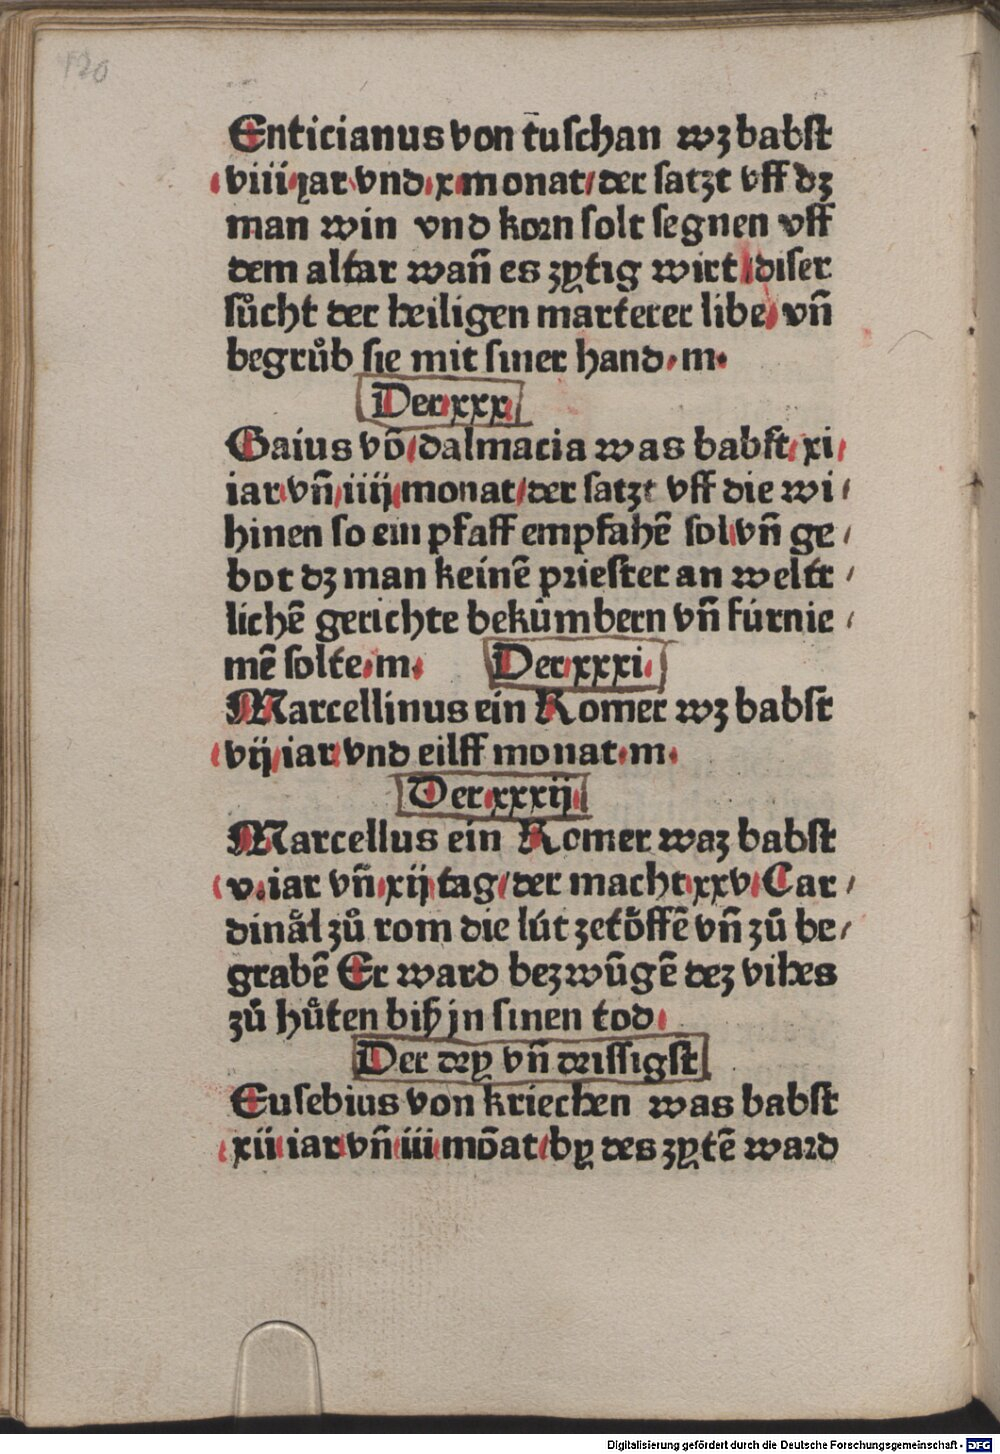 120
Enticianus von tuſchan wʒ babſt
viii iar vnd x monat / der ſatzt vff dʒ
man win vnd korn ſolt ſegnen vff
dem altar wañ es zytig wirt / diſer
ſůcht der heiligen marterer libe / vñ
begrůb ſie mit ſiner hand · m ·
Der xxx
Gaius vō dalmacia was babſt / xi
iar vñ iiij monat / der ſatzt vff die wi /
hinen ſo ein pfaff empfahē ſol vñ ge /
bot dʒ man keinē prieſter an weltt /
lichē gerichte bekümbern vñ fúrnie /
mē ſolte · m · Der xxxi ·
Marcellinus ein Romer wʒ babſt
vij iar vnd eilff monat · m ·
Der xxxij
Marcellus ein Romer waʒ babſt
v. iar vñ xij tag / der macht xxv Car /
dinål zů rom die lút zetöffē vñ zů be /
grabē Er ward bezwūgē deʒ vihes
zů hůten biß jn ſinen tod
Der dry vñ driſſigſt
Euſebius von kriechen was babſt
xii iar vñ iii mōat / by des zytē ward
Digitalisierung gefördert durch die Deutsche Forschungsgemeinschaft - DFG